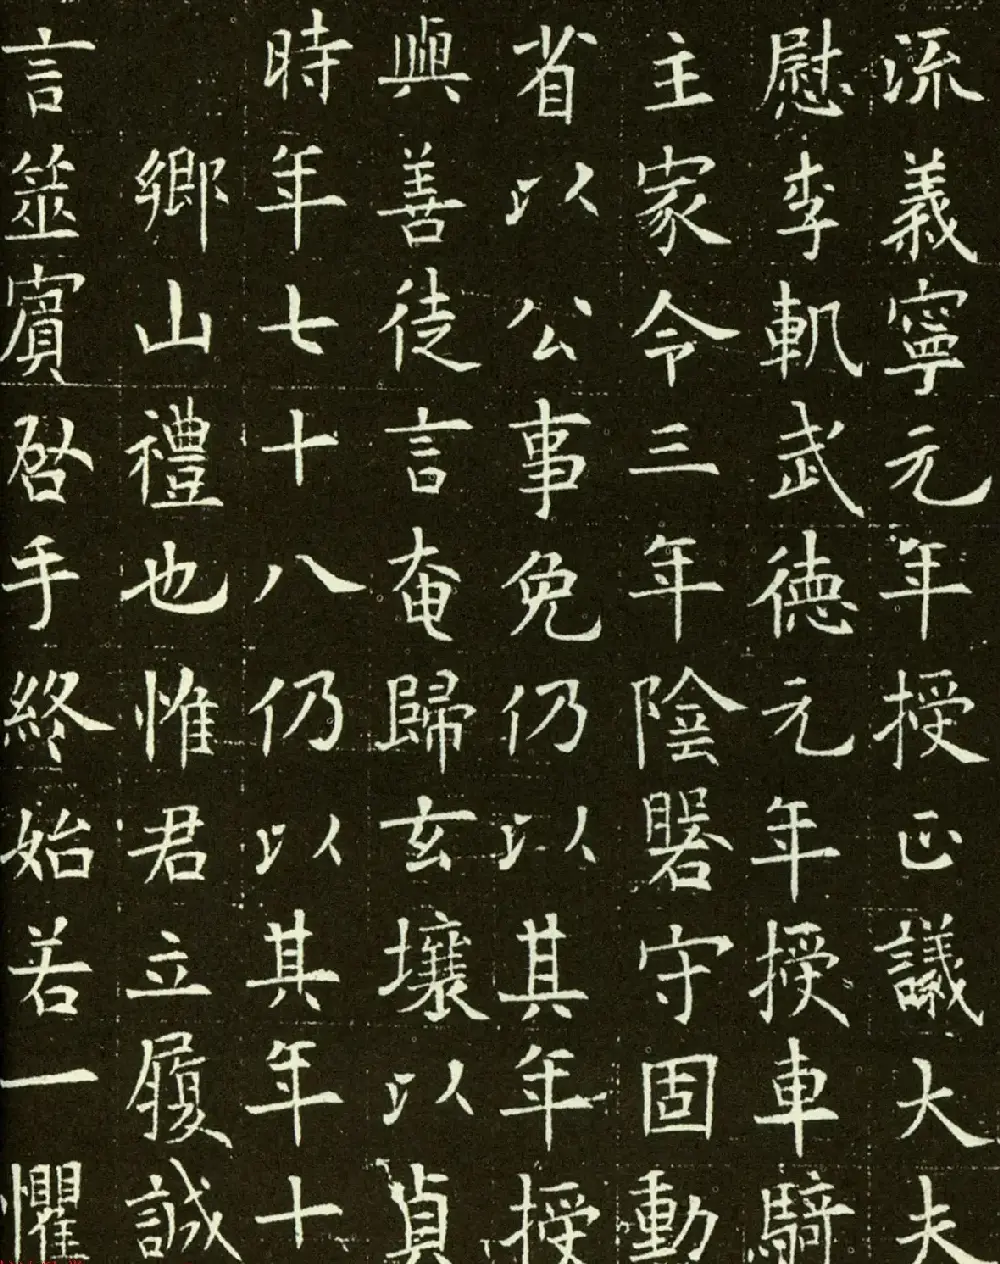 流義寧元年授正議大夫
慰李軌武德元年授車騎
主家令三年陰署守固動
省以公事免仍以其年授
與善徒言奄歸玄壤以貞
時年七十八仍以其年十
鄉山禮也惟君立履誠
言筮賓啓手終始若一懼